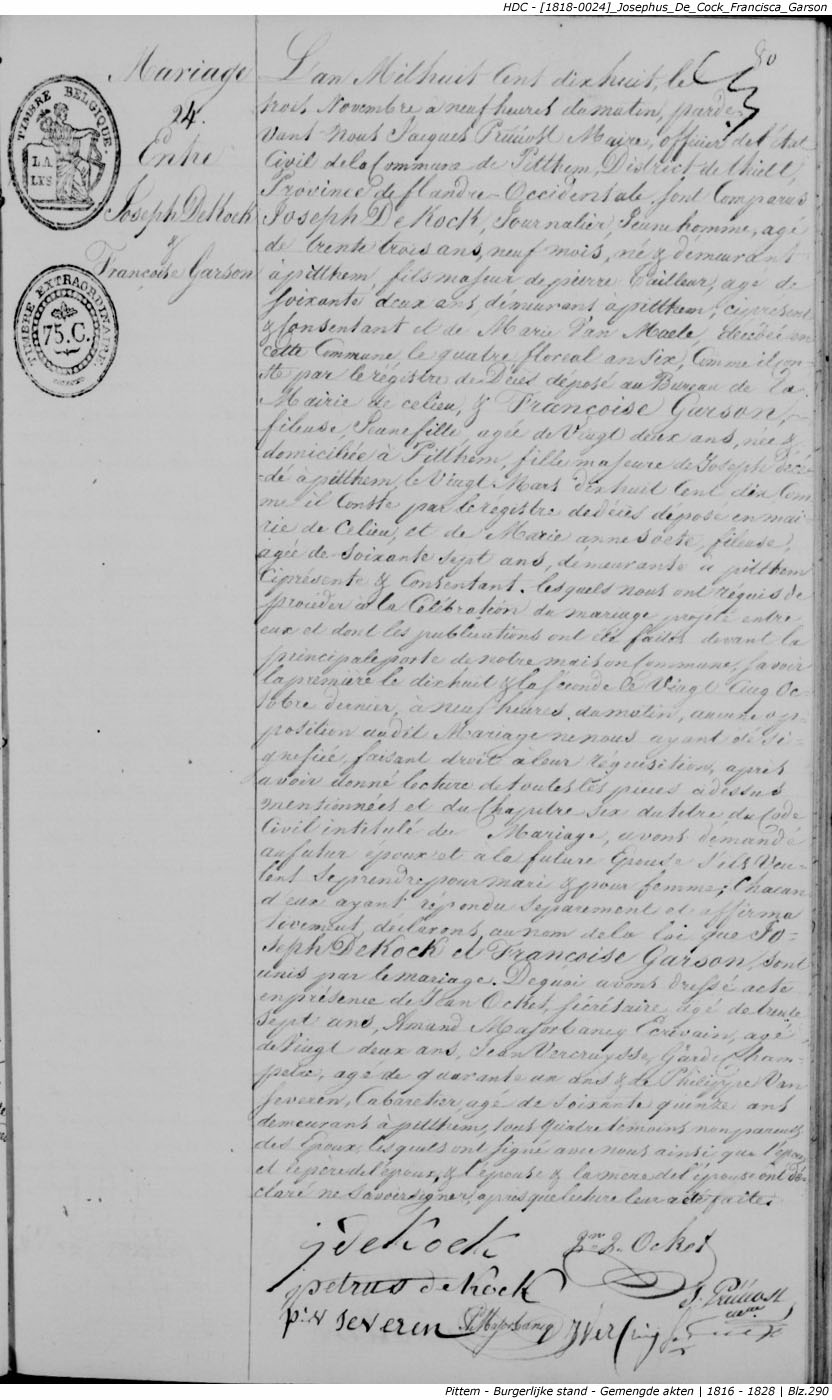 HDC - [1818-0024]_Josephus_De_Cock_Francisca_Garson
80
Mariage
24.
Entre
Joseph DeKock
&
Françoise Garson
TIMBRE BELGIQUE
LA
LYS
TIMBRE EXTRAORDINAIRE
75.C.
L'an Milhuit Cent dixhuit, le
trois Novembre à neuf heures du matin, parde
vant Nous Jacques Prévost Maire, officier de l'état
Civil dela Commune de Pitthem, District de thielt,
Province de flandre-Occidentale, sont Comparus
Joseph DeKock, Journalier, Jeune homme, agé
de trente trois ans, neuf mois, né & demeurant
à pitthem, fils majeur de pierre tailleur, age de
soixante deux ans demeurant à pitthem, ciprésent
& Consentant et de Marie Van Maele décédée en
cette Commune le quatre floreal an six, Comme il con-
ste par le régistre de Décès déposé au Bureau de la
Mairie de celieu, & Françoise Garson,
fileuse, Jeune fille, agée de Vingt deux ans, née &
domiciliée à Pitthem, fille majeure de Joseph décé-
dé à pitthem, le Vingt Mars dixhuit Cent dix Com
me il Conste par le régistre de décès déposé en mai
rie de Celieu, et de Marie anne fileuse,
agée de Soixante sept ans, démeurante à pitthem
Ciprésente & Consentant. lesquels nous ont réquis de
procéder à la Célébration du mariage projeté entre
eux et dont les publications ont été faites devant la
principale porte de notre maison Commune, savoir
la première le dixhuit & la seconde le Vingt Cinq Oc-
tobre dernier, à neuf heures du matin, aucune op-
position audit Mariage ne nous ayant été si-
gnefiée, faisant droit à leur réquisition, après
avoir donné lecture de toutes les pièces adessus
mensionnées et du Chapitre six du titre du Code
Civil intitulé du Mariage, avons démandé
au futur époux et à la future Epouse s'ils Veu-
lent se prendre pour mari & pour femme; Chacun
d'eux ayant répondu séparement et affirma
tivement, déclarons au nom de la loi que Jo-
seph DeKock et Françoise Garson, sont
unis par le mariage. Dequoi avons dressé acte
en présence de Jean Ocket, sécrétaire agé de trente
sept ans, Amand Ecrivain, agé
de Vingt deux ans, Jean Vercruysse, Garde Cham-
petre, agé de quarante un ans & de Philippe Van
Severen, Cabaretier, agé de soixante quinze ans
demeurant à pitthem, tous quatre temoins non parents
des Epoux, lesquels ont signé avec nous ainsi que l'époux
et le père de l'époux, & l'épouse & la mère de l'épouse ont dé-
claré ne savoir signer, après que lecture leur a été faite.
j deKock
Ocket
petrus de Kock
J. Prévost
maire
severen
Pittem - Burgerlijke stand - Gemengde akten | 1816 - 1828 | Blz.290